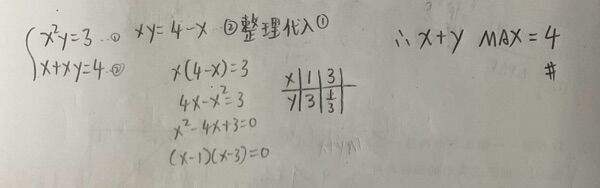 x²y=3 … ①
x+xy=4 … ②
xy=4-x ②整理代入①
x(4-x)=3
4x-x²=3
x²-4x+3=0
(x-1)(x-3)=0
x | 1 | 3
y | 3 | 1/3
∴ x+y MAX = 4
#